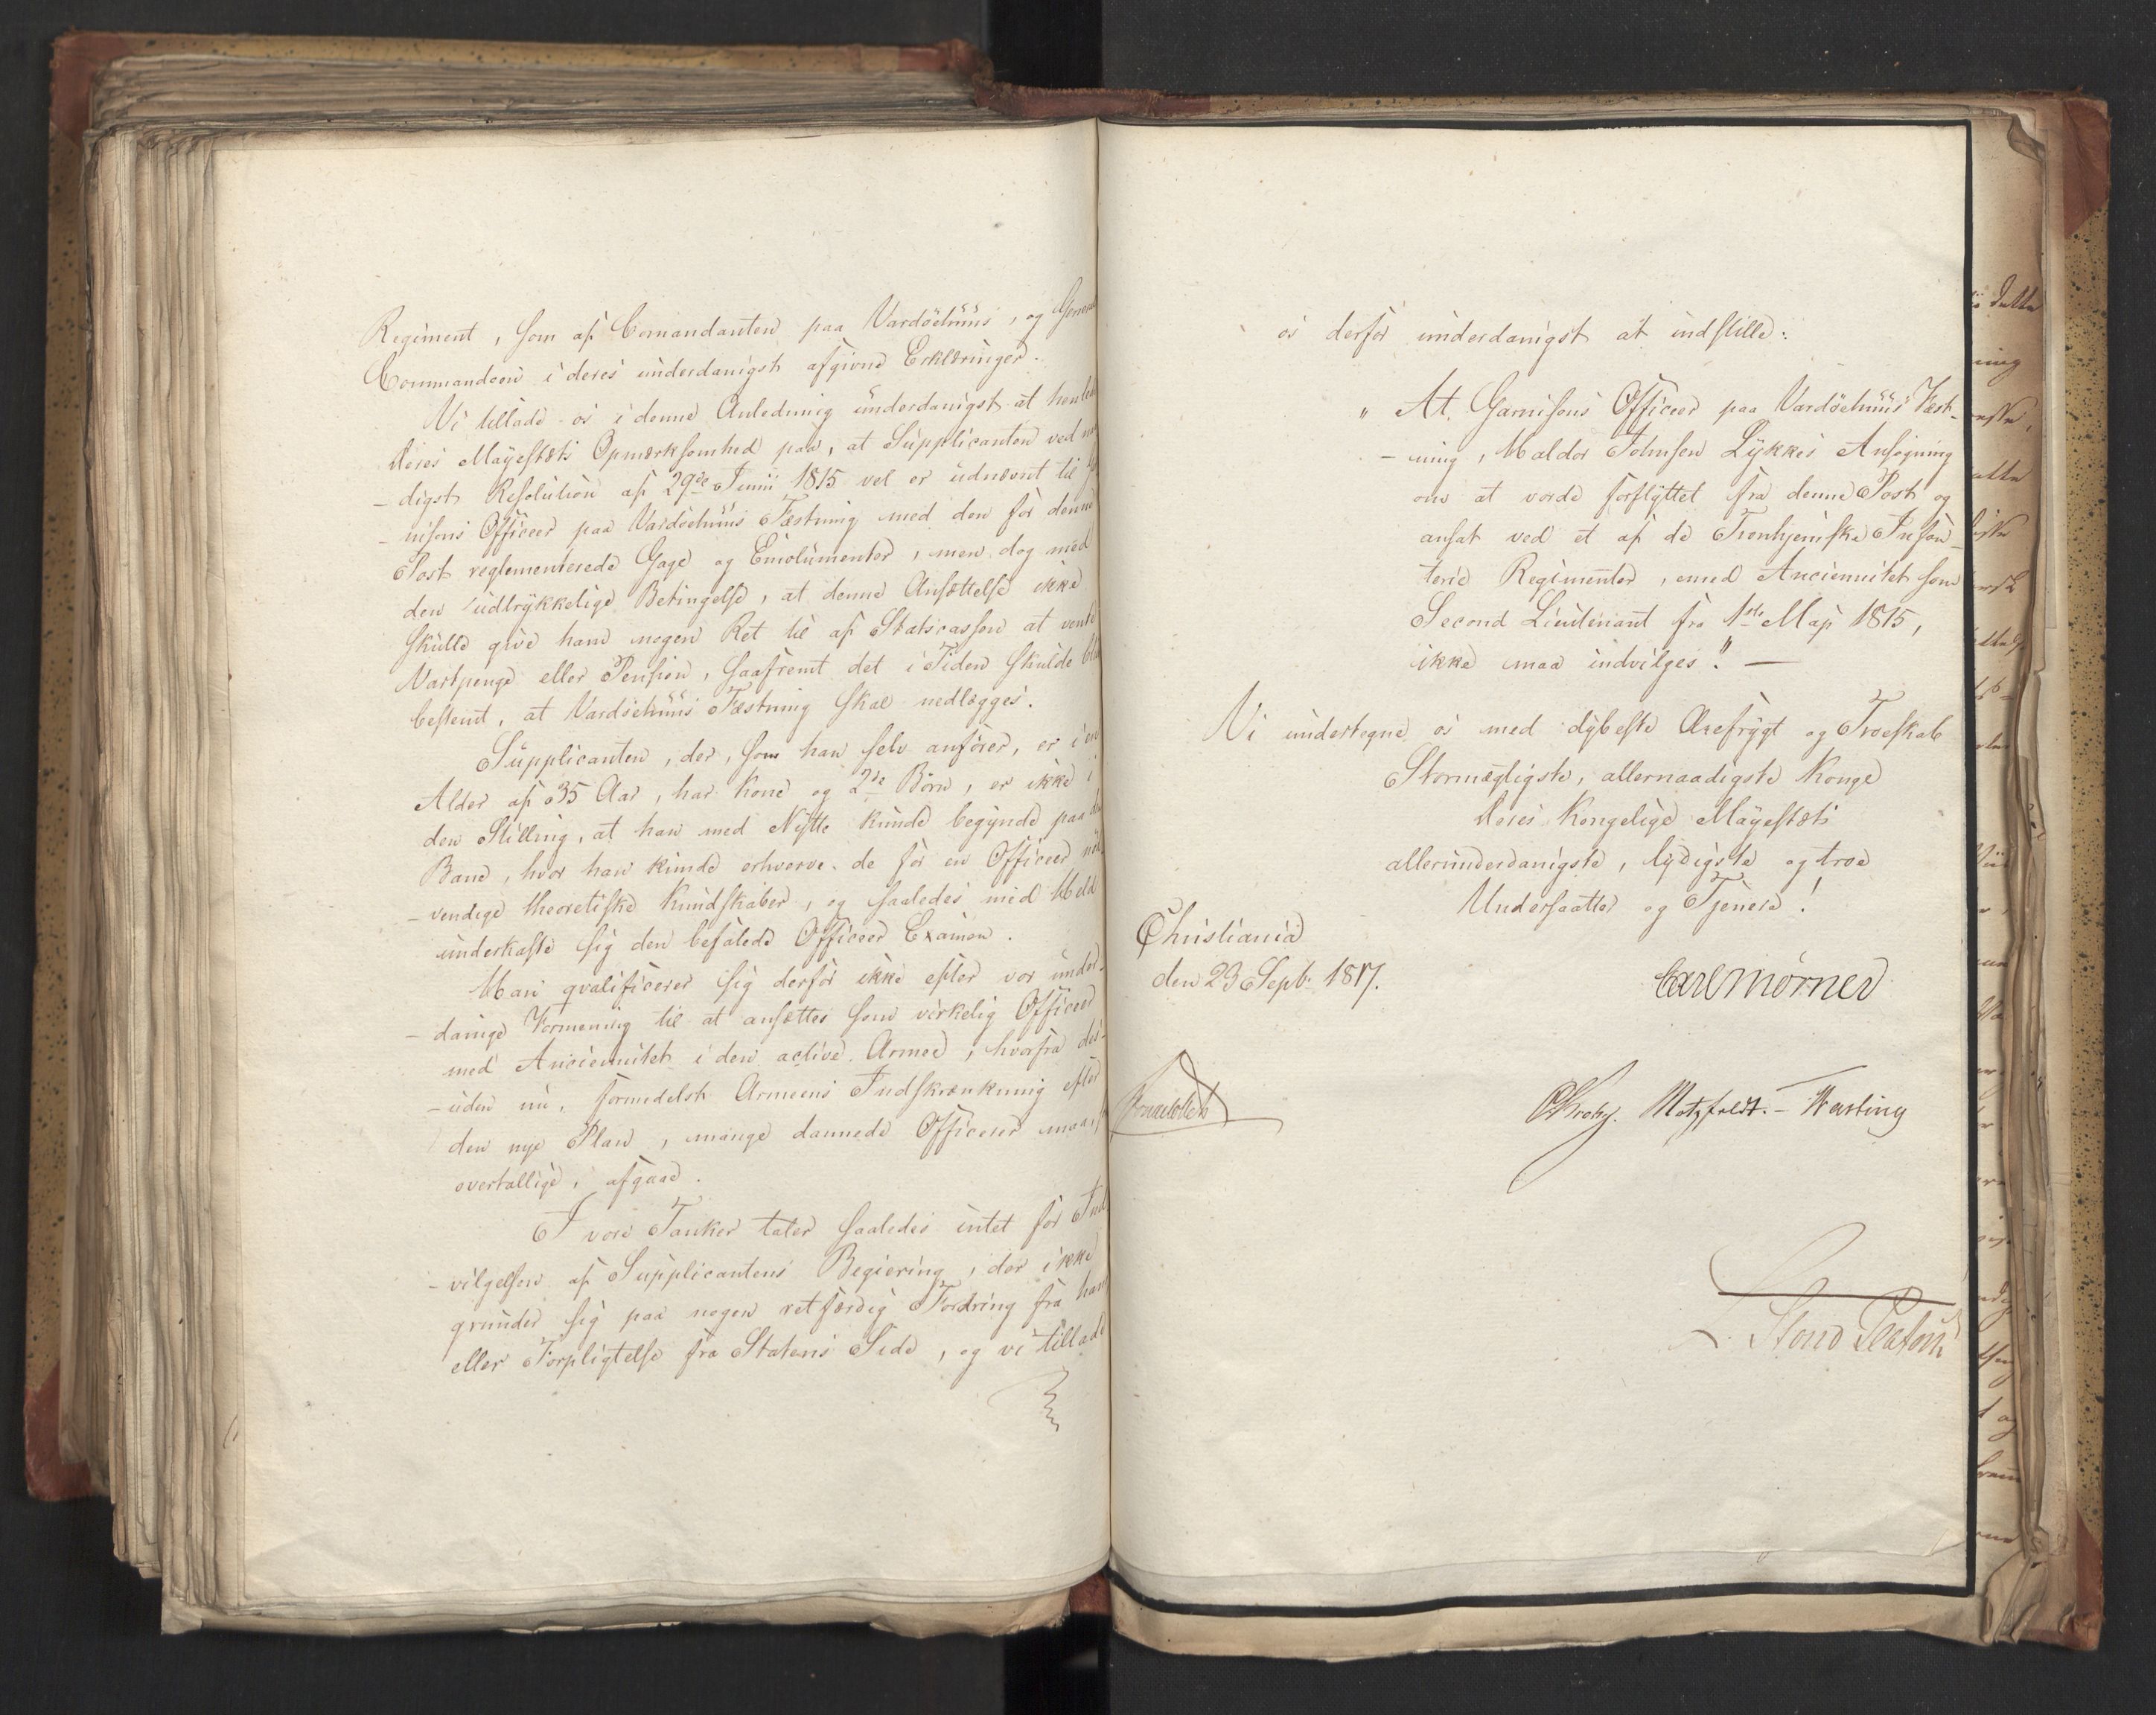 Regiment, som af Comandanten paa Vardöehuus, og General
Commandoen i deres underdanigst afgivne Erklæringer.
Vi tillade os i denne Anledning underdanigst at henlede
Deres Mayestæts Opmærksomhed paa, at Supplicanten ved naa-
-digst Resolution af 29de Junii 1815 vel er udnævnt til Gar-
-nisons Officeer paa Vardöehuus Fæstning med den for denne
Post reglementerede Gage og Emolumenter, men dog med
den udtrykkelige Betingelse, at denne Ansættelse ikke
skulle give ham nogen Ret til af Statscassen at vente
Vartpenge eller Pension, saafremt det i Tiden skulde blive
bestemt, at Vardöehuus Fæstning skal nedlægges.
Supplicanten, der, som han selv anförer, er i en
Alder af 35 Aar, har Kone og 2de Börn, er ikke i
den Stilling, at han med Nytte kunde begynde paa den
Bane, hvor han kunde erhverve de for en Officeer nöd-
-vendige theoretiske Kundskaber, og saaledes med Held
underkaste sig den befalede Officeer Examen.
Han qvalificerer sig derfor ikke efter vor under-
-danige Formening til at ansættes som virkelig Officeer
med Anciennitet i den active Armee, hvorfra des-
-uden nu, formedelst Armeens Indskrænkning efter
den nye Plan, mange dannede Officerer maae,
overtallige, afgaae.
I vore Tanker taler saaledes intet for Ind-
-vilgelsen af Supplicantens Begiering, der ikke
grunder sig paa nogen retfærdig Fordring fra hans
eller Forpligtelse fra Statens Side, og vi tillade
os derfor underdanigst at indstille:
" At Garnisons Officeer paa Vardöehuus Fæst-
-ning, Haldor Johnsen Lykkes Ansögning
om at vorde forflyttet fra denne Post og
ansat ved et af de Tronhjemske Infan-
terie Regimenter, med Anciennitet som
Second Lieutenant fra 1ste Maj 1815,
ikke maa indvilges." —
Vi undertegne os med dybeste Ærefrygt og Troeskab
Stormægtigste, allernaadigste Konge
Deres Kongelige Mayestæts
allerunderdanigste, lydigste og troe
Undersaatter og Tjenere!
Christiania
den 23 Septbr 1817.
Carl Mörner
Krohg. Motzfeldt. - Hersting